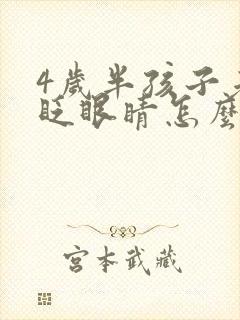 4歲半孩子
眨眼睛怎麼
宮本武藏